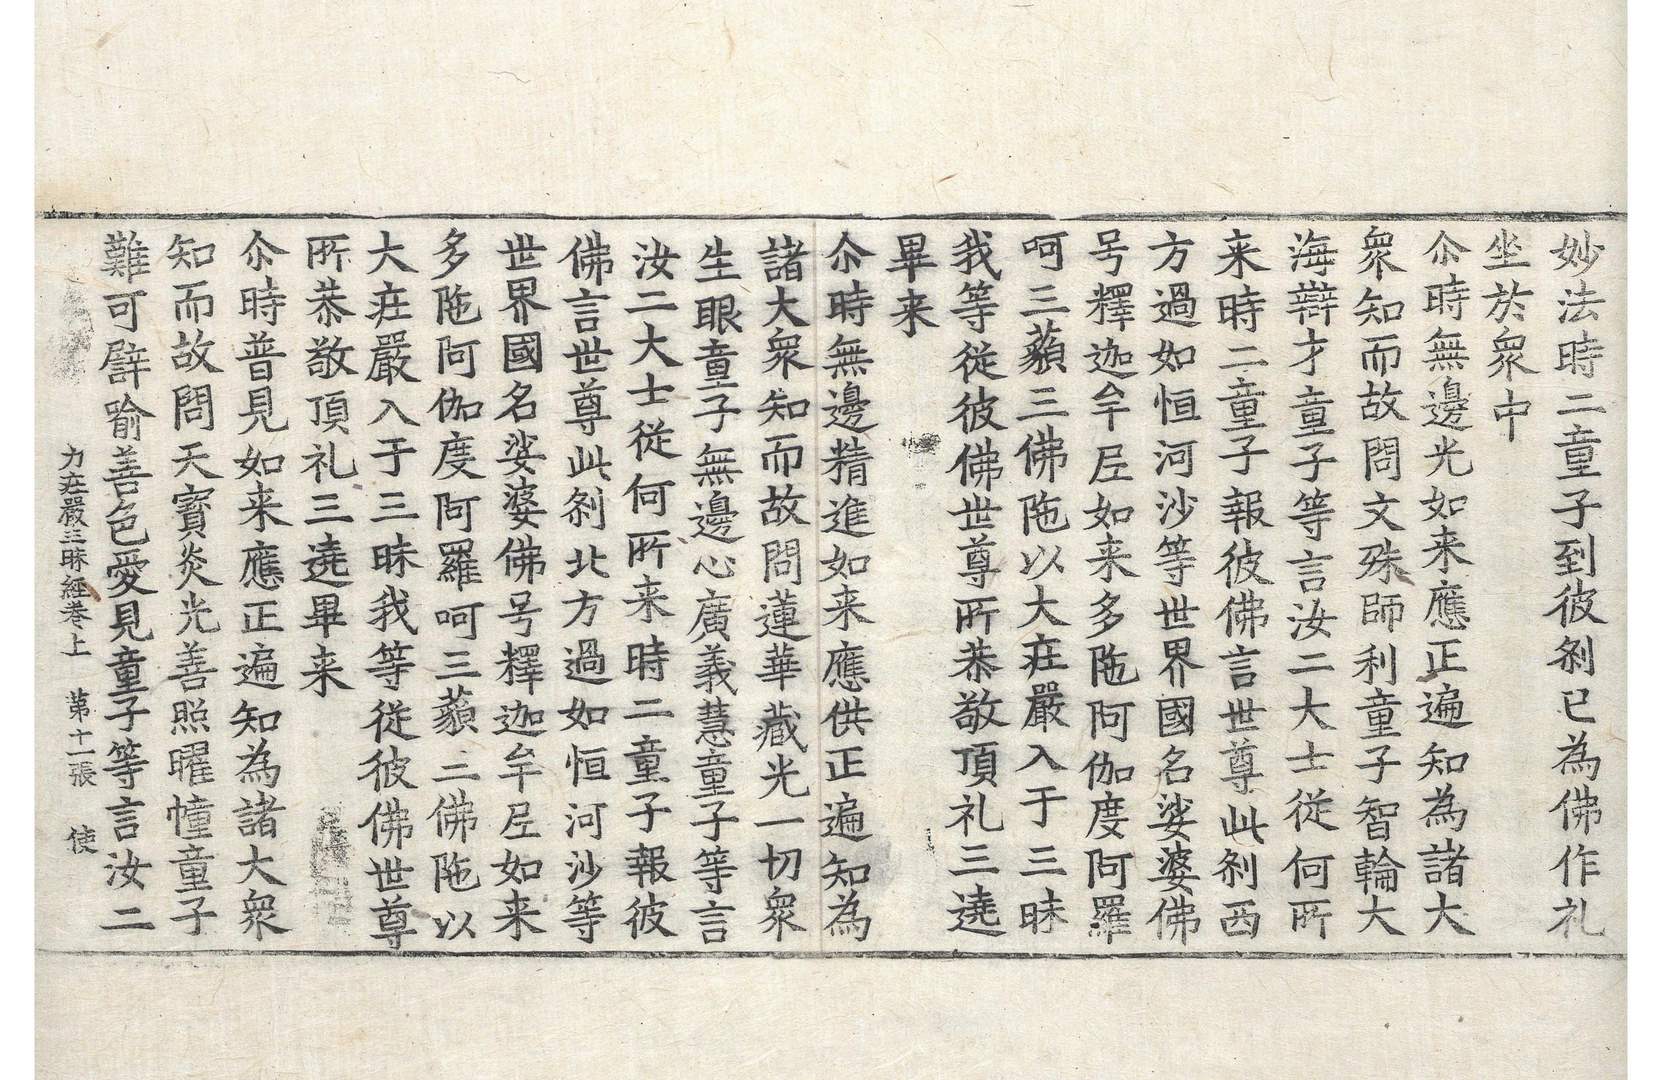 妙法時二童子到彼刹已為佛作礼
坐於衆中
尒時無邊光如来應正遍知為諸大
衆知而故問文殊師利童子智輪大
海辯才童子等言汝二大士従何所
来時二童子報彼佛言世尊此刹西
方過如恒河沙等世界國名娑婆佛
号釋迦牟尼如来多陁阿伽度阿羅
呵三藐三佛陁以大庄嚴入于三昧
我等従彼佛世尊所恭敬頂礼三遶
畢来
尒時無邊精進如来應供正遍知為
諸大衆知而故問蓮華藏光一切衆
生眼童子無邊心廣義慧童子等言
汝二大士従何所来時二童子報彼
佛言世尊此刹北方過如恒河沙等
世界國名娑婆佛号釋迦牟尼如来
多陁阿伽度阿羅呵三藐三佛陁以
大庄嚴入于三昧我等従彼佛世尊
所恭敬頂礼三遶畢来
尒時普見如来應正遍知為諸大衆
知而故問天寶炎光善照曜幢童子
難可譬喻善色愛見童子等言汝二
力庄嚴三昧經巻上　第十一張　使